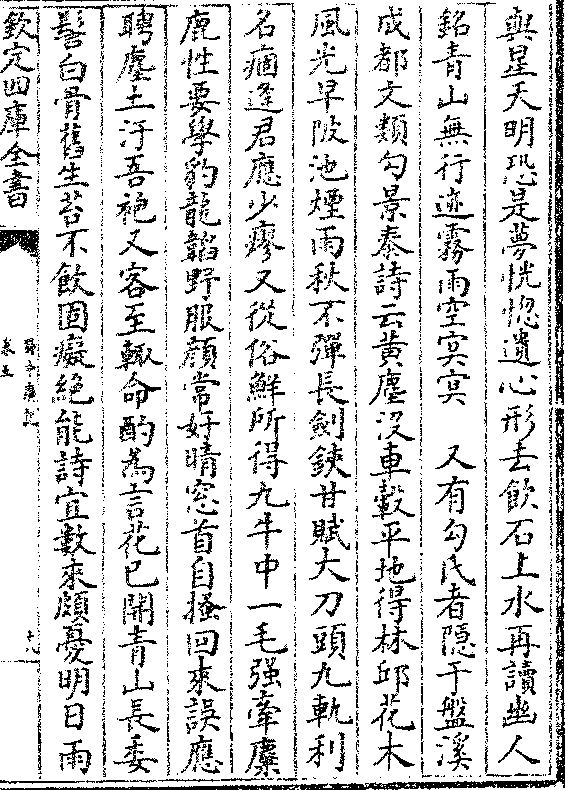 與星天明恐是夢恍惚遺心形去飲石上水再讀幽人
銘青山無行迹霧雨空冥冥　又有勾氏者隱于盤溪
成都文類勾景泰詩云黄塵沒車轂平地得林邱花木
風光早陂池煙雨秋不彈長劍鋏甘賦大刀頭九軌利
名痼逢君應少瘳又從俗鮮所得九牛中一毛强牽麋
鹿性要學豹龍韜野服顔常好晴窓首自搔回來誤應
聘塵土汙吾袍又客至輙命酌為言花已開青山長委
髻白骨舊生苔不飲固癡絶能詩宜數來頗憂明日雨
欽定四庫全書
卷五
十九